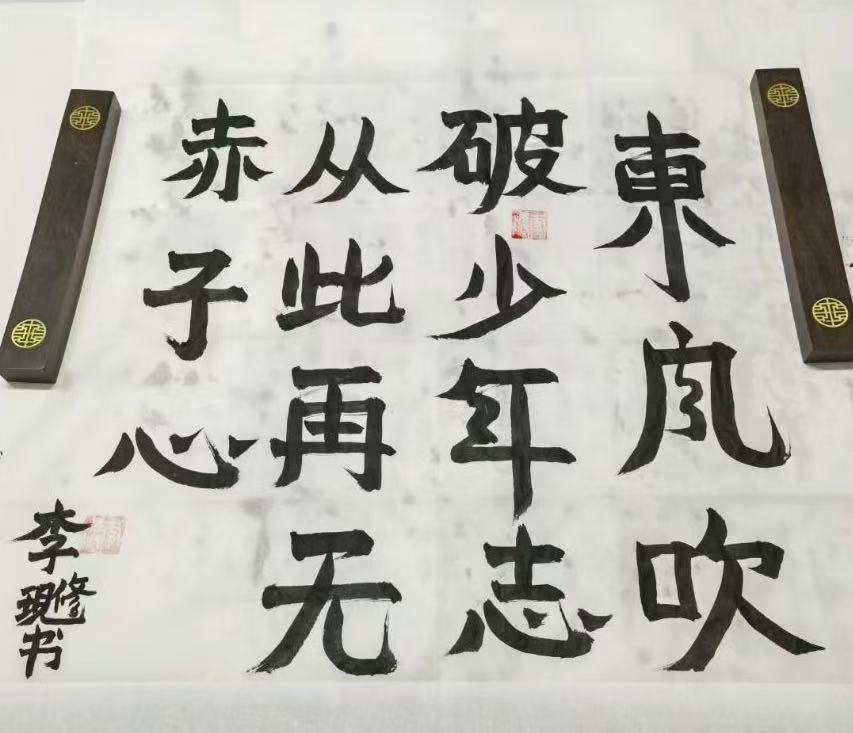 東风吹
破少年志
从此再无
赤子心
李修现书